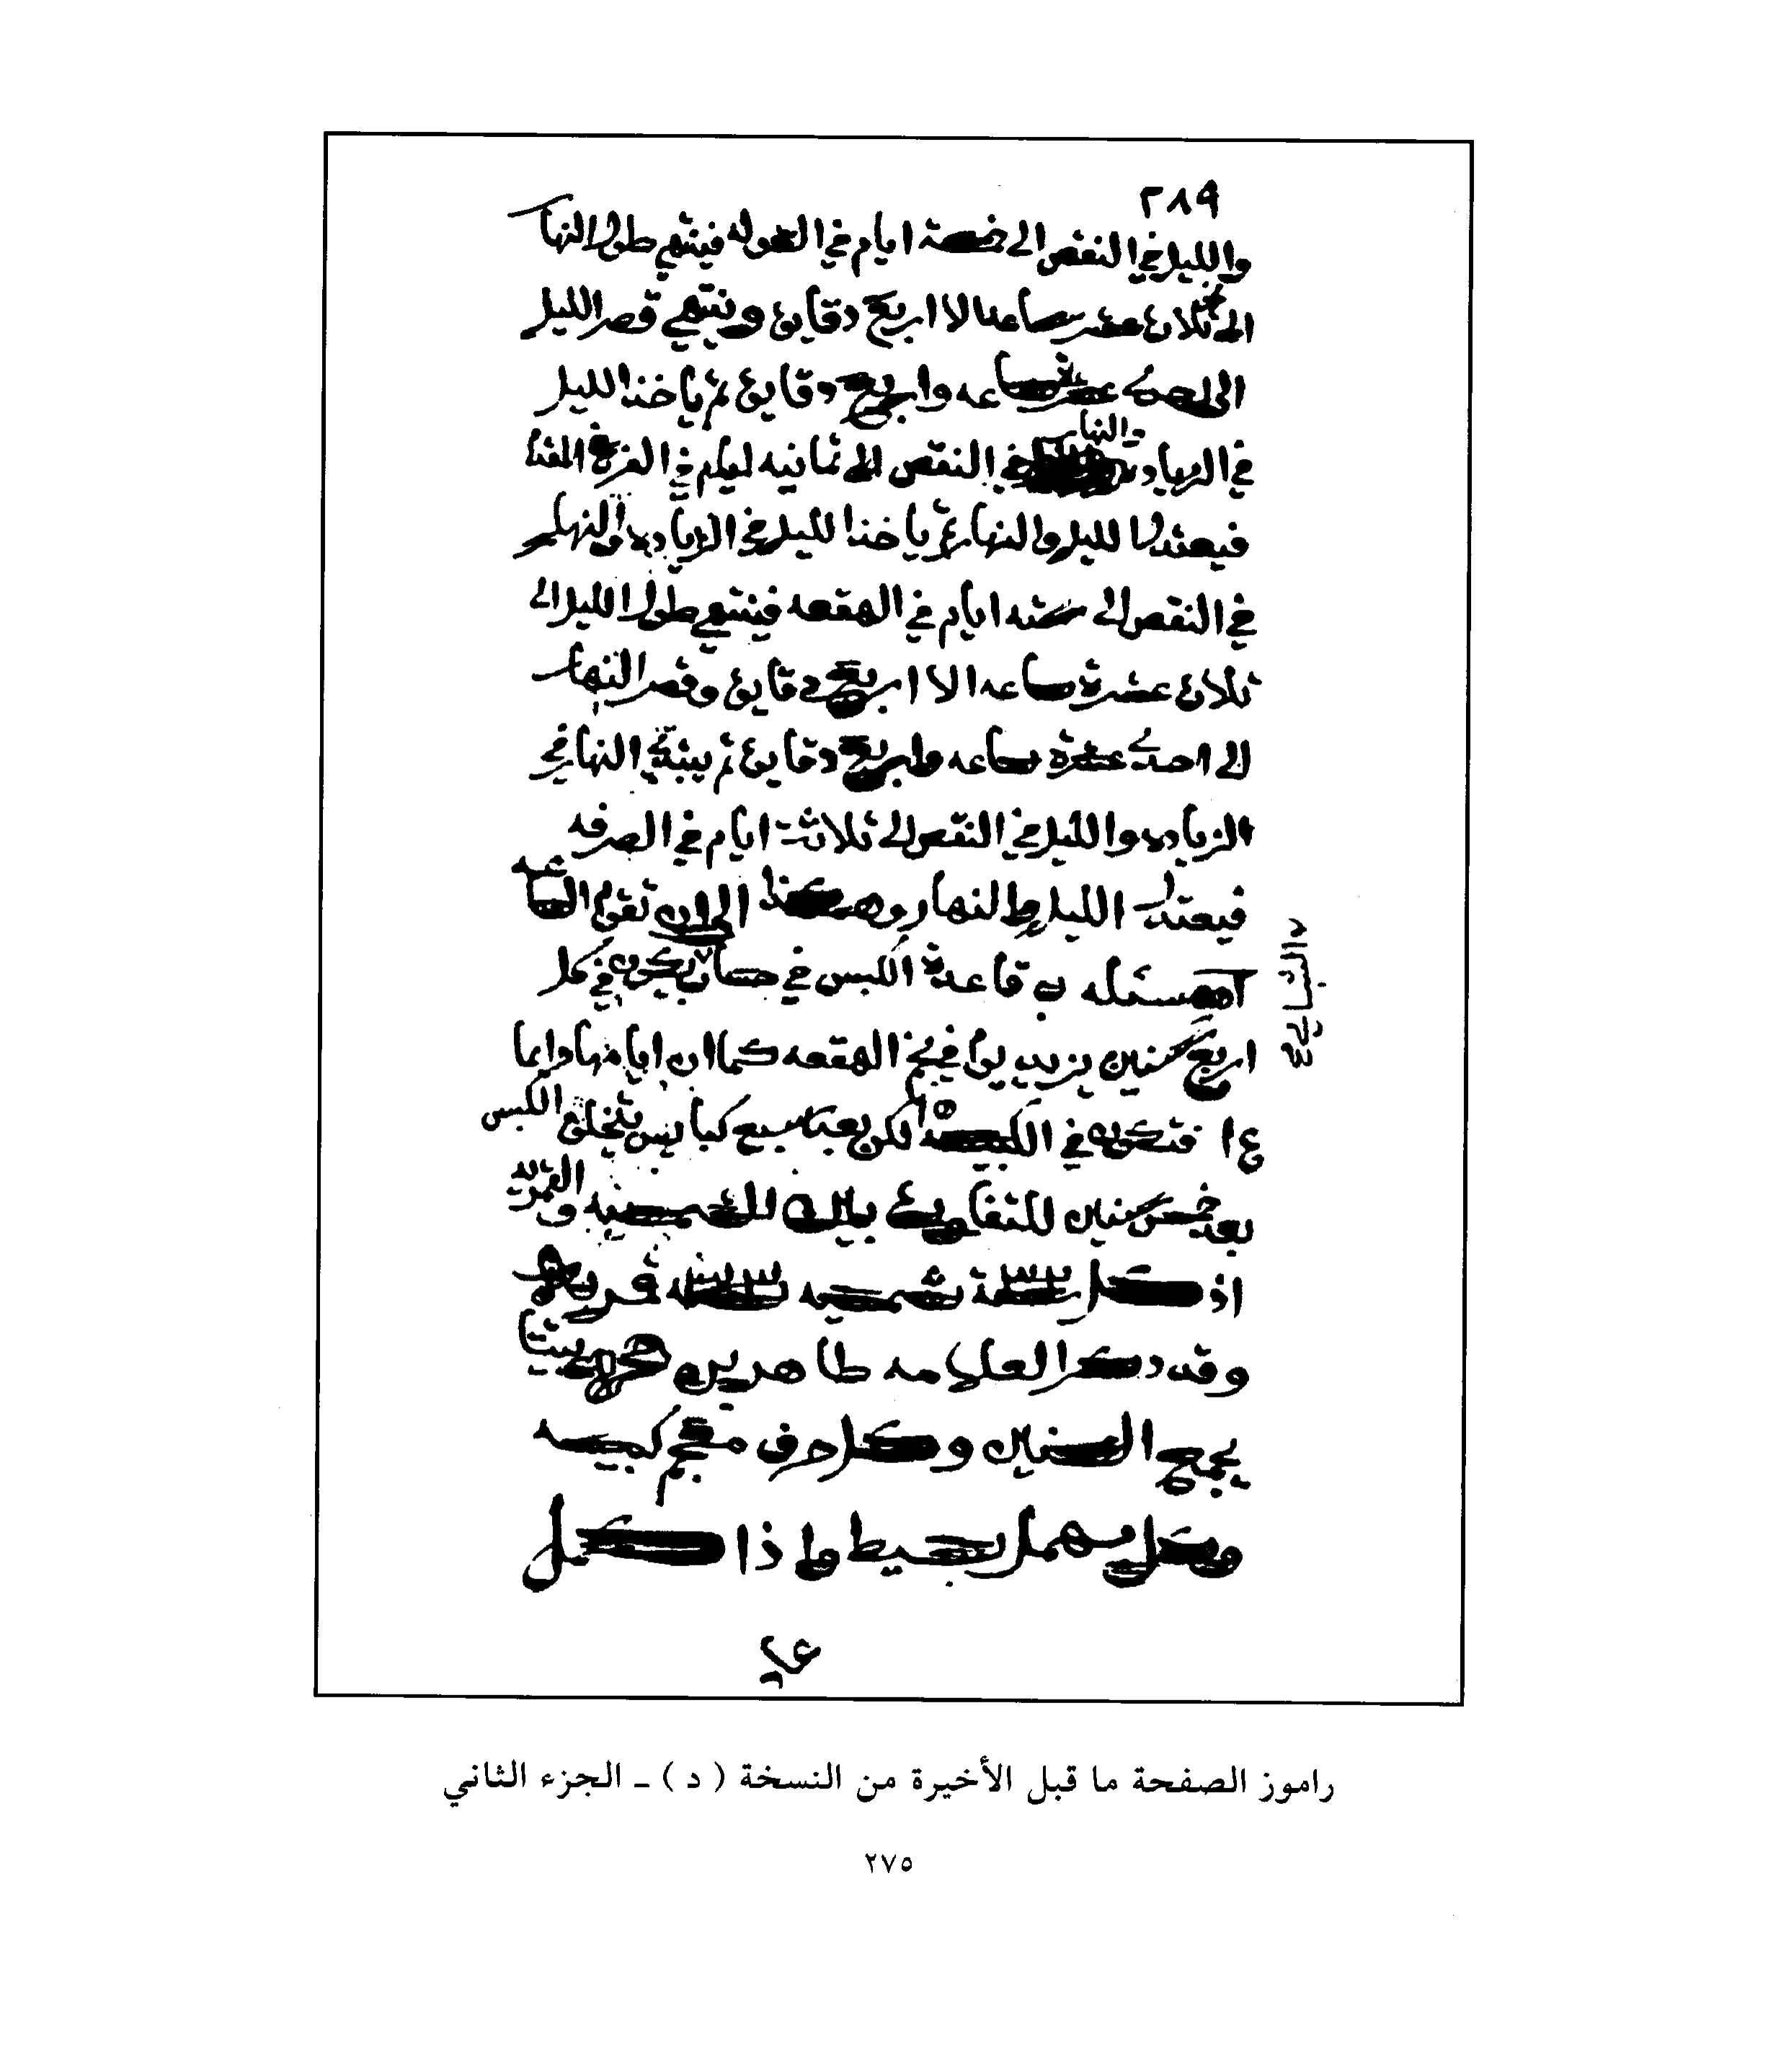 ٢٨٩
والليل في النقص الى خمسة ايام في الشوله فينتهي طول النها
الى ثلاث عشر ساعه الا اربع دقايق وينتهي قصر الليل
الى احدى عشر ساعه واربع دقايق ثم ياخذ الليل
في الزياده والنهار في النقص الى ثمانيه ايام في الفرغ
فيعتدل الليل والنهار ثم ياخذ الليل في الزياده والنهار
في النقص الى سته ايام في الهقعه فينتهي طول الليل الى
ثلاث عشرة ساعه الا اربع دقايق وقصر النهار
الى احدى عشرة ساعه واربع دقايق ثم النهار في
الزياده والليل في النقص الى ثلاثة ايام في الصرفه
فيعتدل الليل والنهار وهكذا الى ان تقوم الساعه
مسئله قاعدة الكبس في حساب يكون في كل
اربع سنين يزيد في نجم الهقعه كما ان ايامها دايما
فتكون في الكبيسه لكن بعد سبع كبايس الكبس
بعد خمس سنين للتفاوت بين الشمسيه والقمريه
اذ كل سنة شمسيه سنه قمريه
وقد ذكر العلامه طاهر بن بيتا
يجمع السنين وكل حرف معجم كبيسه
وكل مهمل بسيط واذا كمل
راموز الصفحة ما قبل الأخيرة من النسخة ( د ) ـ الجزء الثاني
٢٧٥